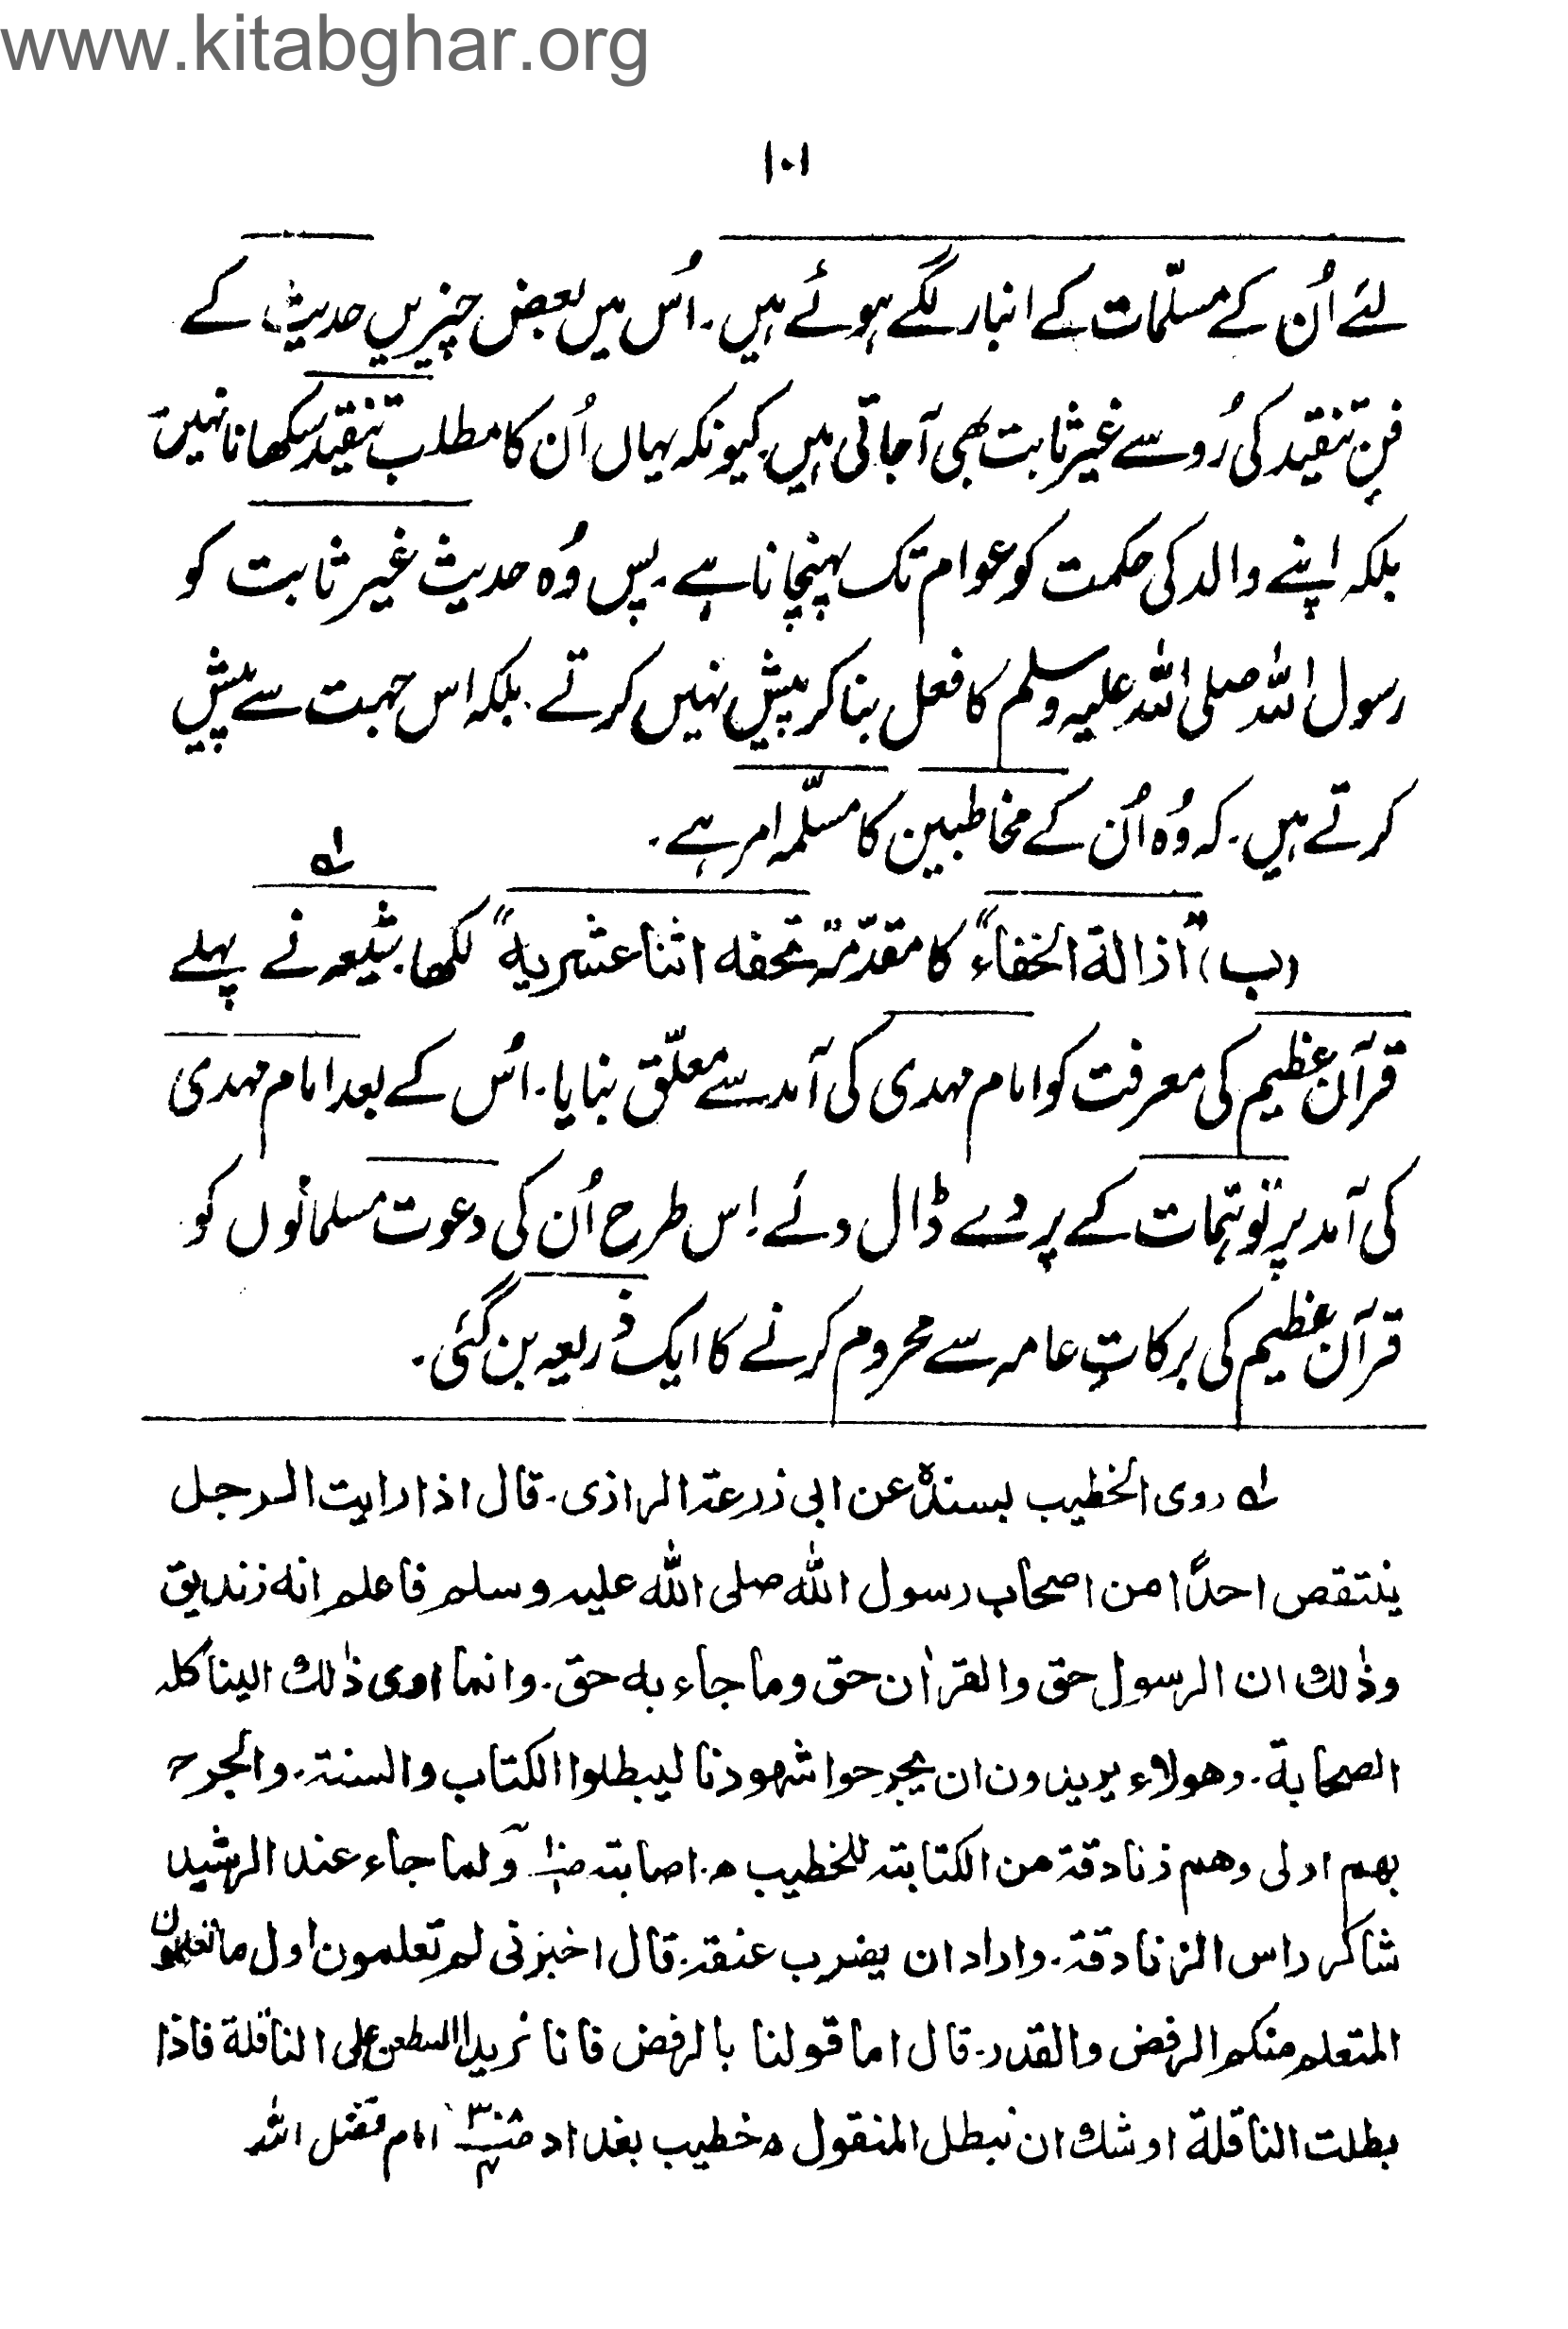 www.kitabghar.org
۱۰۱
لئے اُن کے مسلّمات کے انبار لگے ہوئے ہیں۔ اُس میں بعض چیزیں حدیث کے
فنِ تنقید کی رُو سے غیر ثابت بھی آجاتی ہیں۔ کیونکہ یہاں اُن کا مطلب تنقید سکھانا نہیں
بلکہ اپنے والد کی حکمت کو عوام تک پہنچانا ہے۔ پس وُہ حدیث غیر ثابت کو
رسول اللہ صلی اللہ علیہ وسلم کا فعل بنا کر پیش نہیں کرتے۔ بلکہ اس جہت سے پیش
کرتے ہیں۔ کہ وُہ اُن کے مخاطبین کا مسلّمہ امر ہے۔
(ب) "ازالة الخفاء" کا مقدّمہ "تحفہ اثنا عشریہ" لکھا۔ شیعہ نے پہلے ؎۱
قرآن عظیم کی معرفت کو امام مہدی کی آمد سے معلّق بنایا۔ اُس کے بعد امام مہدی
کی آمد پر توہّمات کے پردے ڈال دئے۔ اِس طرح اُن کی دعوت مسلمانوں کو
قرآن عظیم کی برکاتِ عامہ سے محروم کرنے کا ایک ذریعہ بن گئی۔
؎۱ روی الخطیب بسندہٖ عن ابی زرعۃ الرازی۔ قال اذا رایت الرجل
ینتقص احدًا من اصحاب رسول اللہ صلی اللہ علیہ وسلم فاعلم انہ زندیق
وذٰلک ان الرسول حق والقرٰان حق وما جاء بہ حق۔ وانما اوی ذٰلک الینا کلہ
الصحابة۔ وھولاء یریدون ان یجرحوا شھودنا لیبطلوا الکتاب والسنۃ۔ والجرح
بھم اولی وھم زنادقۃ من الکتابتہ للخطیب ھ۔ اصابتہ ولما جاء عند الرشید
شاکر راس الزنادقۃ۔ واراد ان یضرب عنقہ۔ قال اخبرنی لم تعلمون اول ما تعلمون
المتعلم منکم الرفض والقدر۔ قال اما قولنا بالرفض فانا نرید الطعن علی الناقلة فاذا
بطلت الناقلة اوشک ان نبطل المنقول ھ خطیب بغداد ص۳۰۸ ج۴ امام فضل اللہ